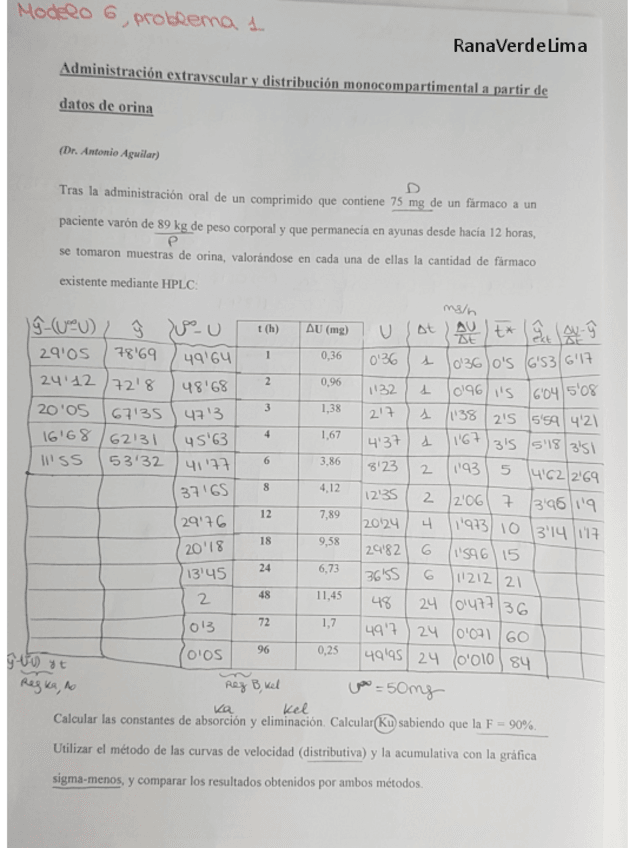 Modelo 6, problema 1
RanaVerdeLima
Administración extravscular y distribución monocompartimental a partir de
datos de orina
(Dr. Antonio Aguilar)
D
Tras la administración oral de un comprimido que contiene 75 mg de un fármaco a un
paciente varón de 89 kg de peso corporal y que permanecía en ayunas desde hacía 12 horas,
P
se tomaron muestras de orina, valorándose en cada una de ellas la cantidad de fármaco
existente mediante HPLC:
mg/h
ŷ-(U∞-U) ŷ U∞-U t (h) ΔU (mg) U Δt ΔU/Δt t* ŷext ΔU/Δt-ŷ
29'05 78'69 49'64 1 0,36 0'36 1 0'36 0'5 6'53 6'17
24'12 72'8 48'68 2 0,96 1'32 1 0'96 1'5 6'04 5'08
20'05 67'35 47'3 3 1,38 2'7 1 1'38 2'5 5'59 4'21
16'68 62'31 45'63 4 1,67 4'37 1 1'67 3'5 5'18 3'51
11'55 53'32 41'77 6 3,86 8'23 2 1'93 5 4'62 2'69
37'65 8 4,12 12'35 2 2'06 7 3'96 1'9
29'76 12 7,89 20'24 4 1'973 10 3'14 1'17
20'18 18 9,58 29'82 6 1'596 15
13'45 24 6,73 36'55 6 1'212 21
2 48 11,45 48 24 0'477 36
0'3 72 1,7 49'7 24 0'071 60
0'05 96 0,25 49'95 24 0'010 84
ŷ-(U∞-U) y t
Reg Ka, Ao Reg B, Kel U∞ = 50mg
Ka Kel
Calcular las constantes de absorción y eliminación. Calcular Ku sabiendo que la F = 90%.
Utilizar el método de las curvas de velocidad (distributiva) y la acumulativa con la gráfica
sigma-menos, y comparar los resultados obtenidos por ambos métodos.